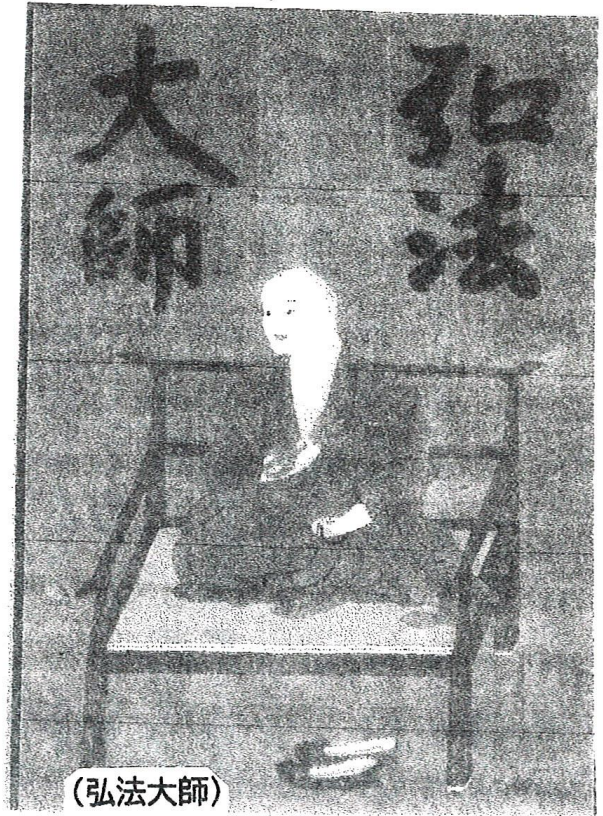 弘法
大師
(弘法大師)